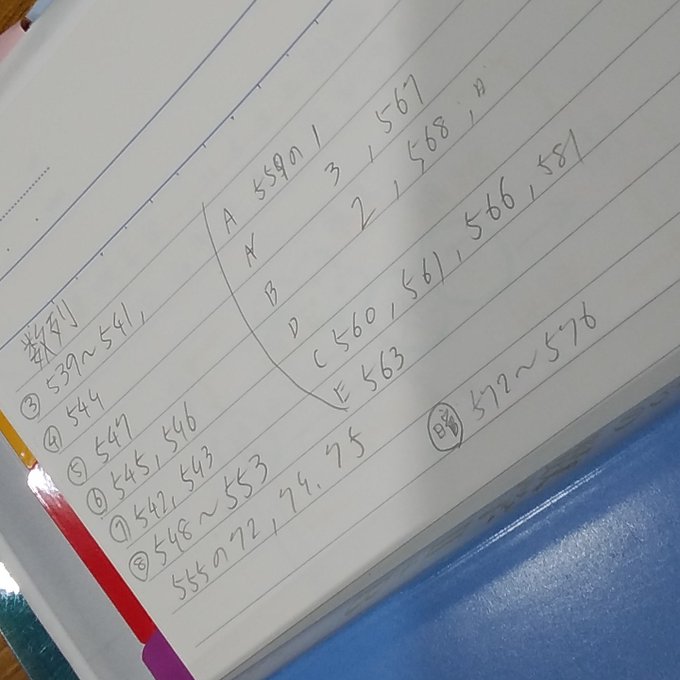 数列
③ 539～541,
④ 544
⑤ 547
⑥ 545, 546
⑦ 542, 543
⑧ 548～553
555の72, 74. 75
A 559の1
A' 3, 567
B 2, 568, A
D
C 560, 561, 566, 581
E 563
572～576